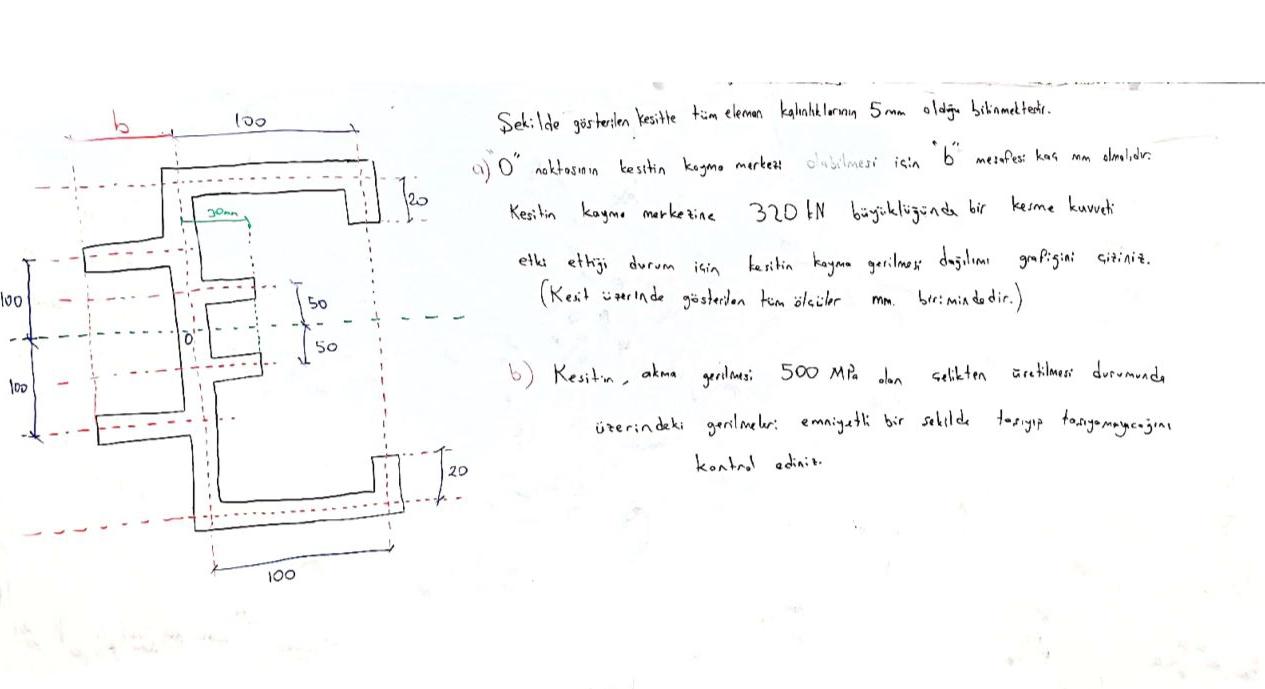 b
100
Şekilde gösterilen kesitte tüm eleman kalınlıklarının 5 mm olduğu bilinmektedir.
a) "O" noktasının kesitin kayma merkezi olabilmesi için "b" mesafesi kaç mm olmalıdır.
20
30mm
Kesitin kayma merkezine 320 kN büyüklüğünde bir kesme kuvveti
etki ettiği durum için kesitin kayma gerilmesi dağılımı grafiğini çiziniz.
(Kesit üzerinde gösterilen tüm ölçüler mm. birimindedir.)
100
50
O
50
100
b) Kesitin, akma gerilmesi 500 MPa olan çelikten üretilmesi durumunda
üzerindeki gerilmeleri emniyetli bir şekilde taşıyıp taşıyamayacağını
kontrol ediniz.
20
100